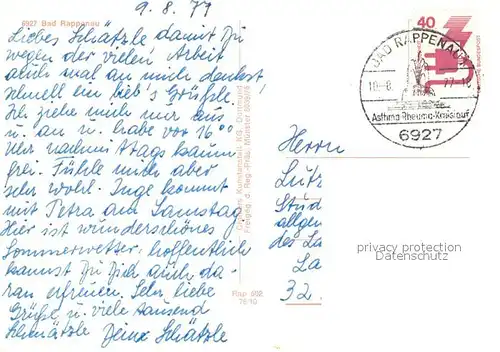 9.8.77
6927 Bad Rappenau
Liebes Schätzle damit Du
wegen der vielen Arbeit
auch mal an mich denkst
schnell ein lieb's Grüßle.
Ich ziehe mich nur aus
u. an u. habe vor 16⁰⁰
Uhr nachmittags kaum
frei. Fühle mich aber
sehr wohl. Inge kommt
mit Petra am Samstag.
Hier ist wunderschönes
Sommerwetter, hoffentlich
kannst Du Dich auch da-
ran erfreuen. Sehr liebe
Grüße u. viele tausend
Schmätzle Deine Schätzle
Freigeg. d. Reg.-Präs. Münster
40
DEUTSCHE BUNDESPOST
BAD RAPPENAU
10.-8. 77-12
Asthma-Rheuma-Kreislauf
6927
Herrn
Lutz
Stud
allgem
des La
La
32.
privacy protection
Datenschutz